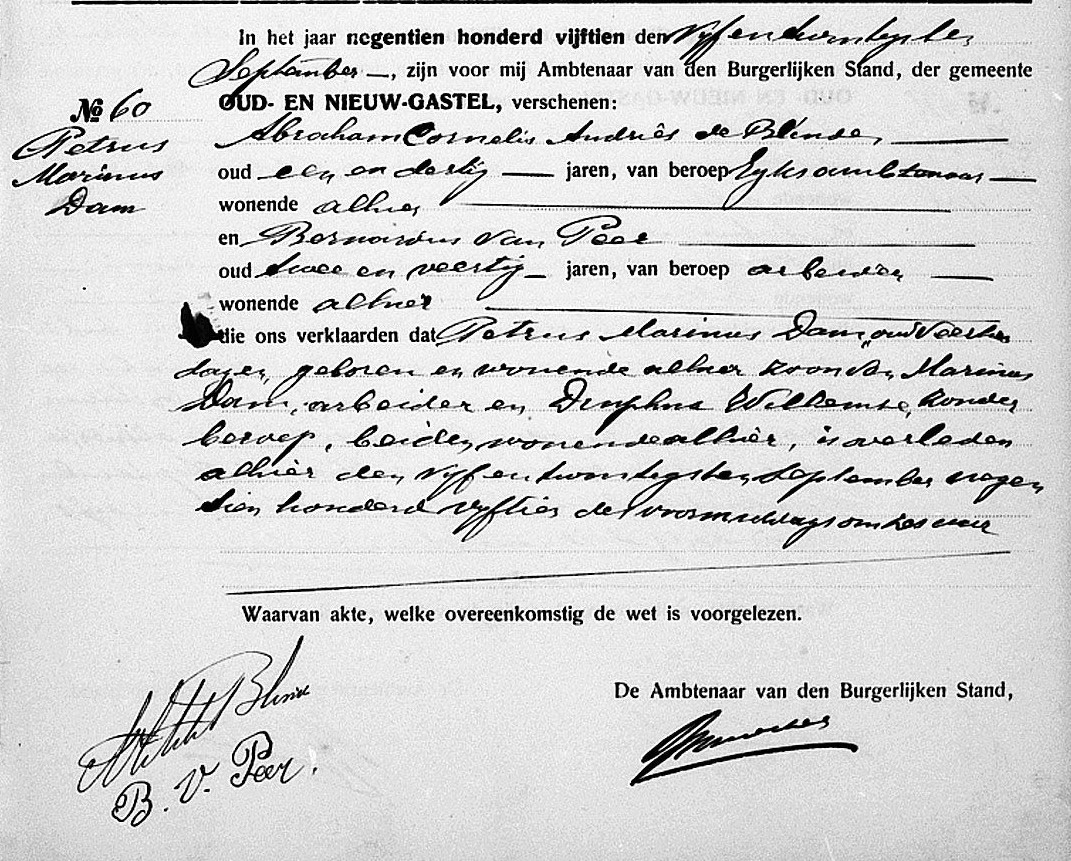 In het jaar negentien honderd vijftien den Vijfentwintigsten
September —, zijn voor mij Ambtenaar van den Burgerlijken Stand, der gemeente
OUD- EN NIEUW-GASTEL, verschenen:
№ 60
Petrus
Marinus
Dam
Abraham Cornelis Andries de Blinde,
oud een en dertig — jaren, van beroep Ryksambtenaar —
wonende alhier
en Bernardus van Peer
oud twee en veertig — jaren, van beroep arbeider
wonende alhier
die ons verklaarden dat Petrus Marinus Dam, oud Veertien
dagen, geboren en wonende alhier zoon van Marinus
Dam, arbeider en Dimphna Willemse, zonder
beroep, beiden wonende alhier, is overleden
alhier den vijfentwintigsten September negen
tien honderd vijftien des voormiddags om zes uur
Waarvan akte, welke overeenkomstig de wet is voorgelezen.
De Ambtenaar van den Burgerlijken Stand,
B. v. Peer.